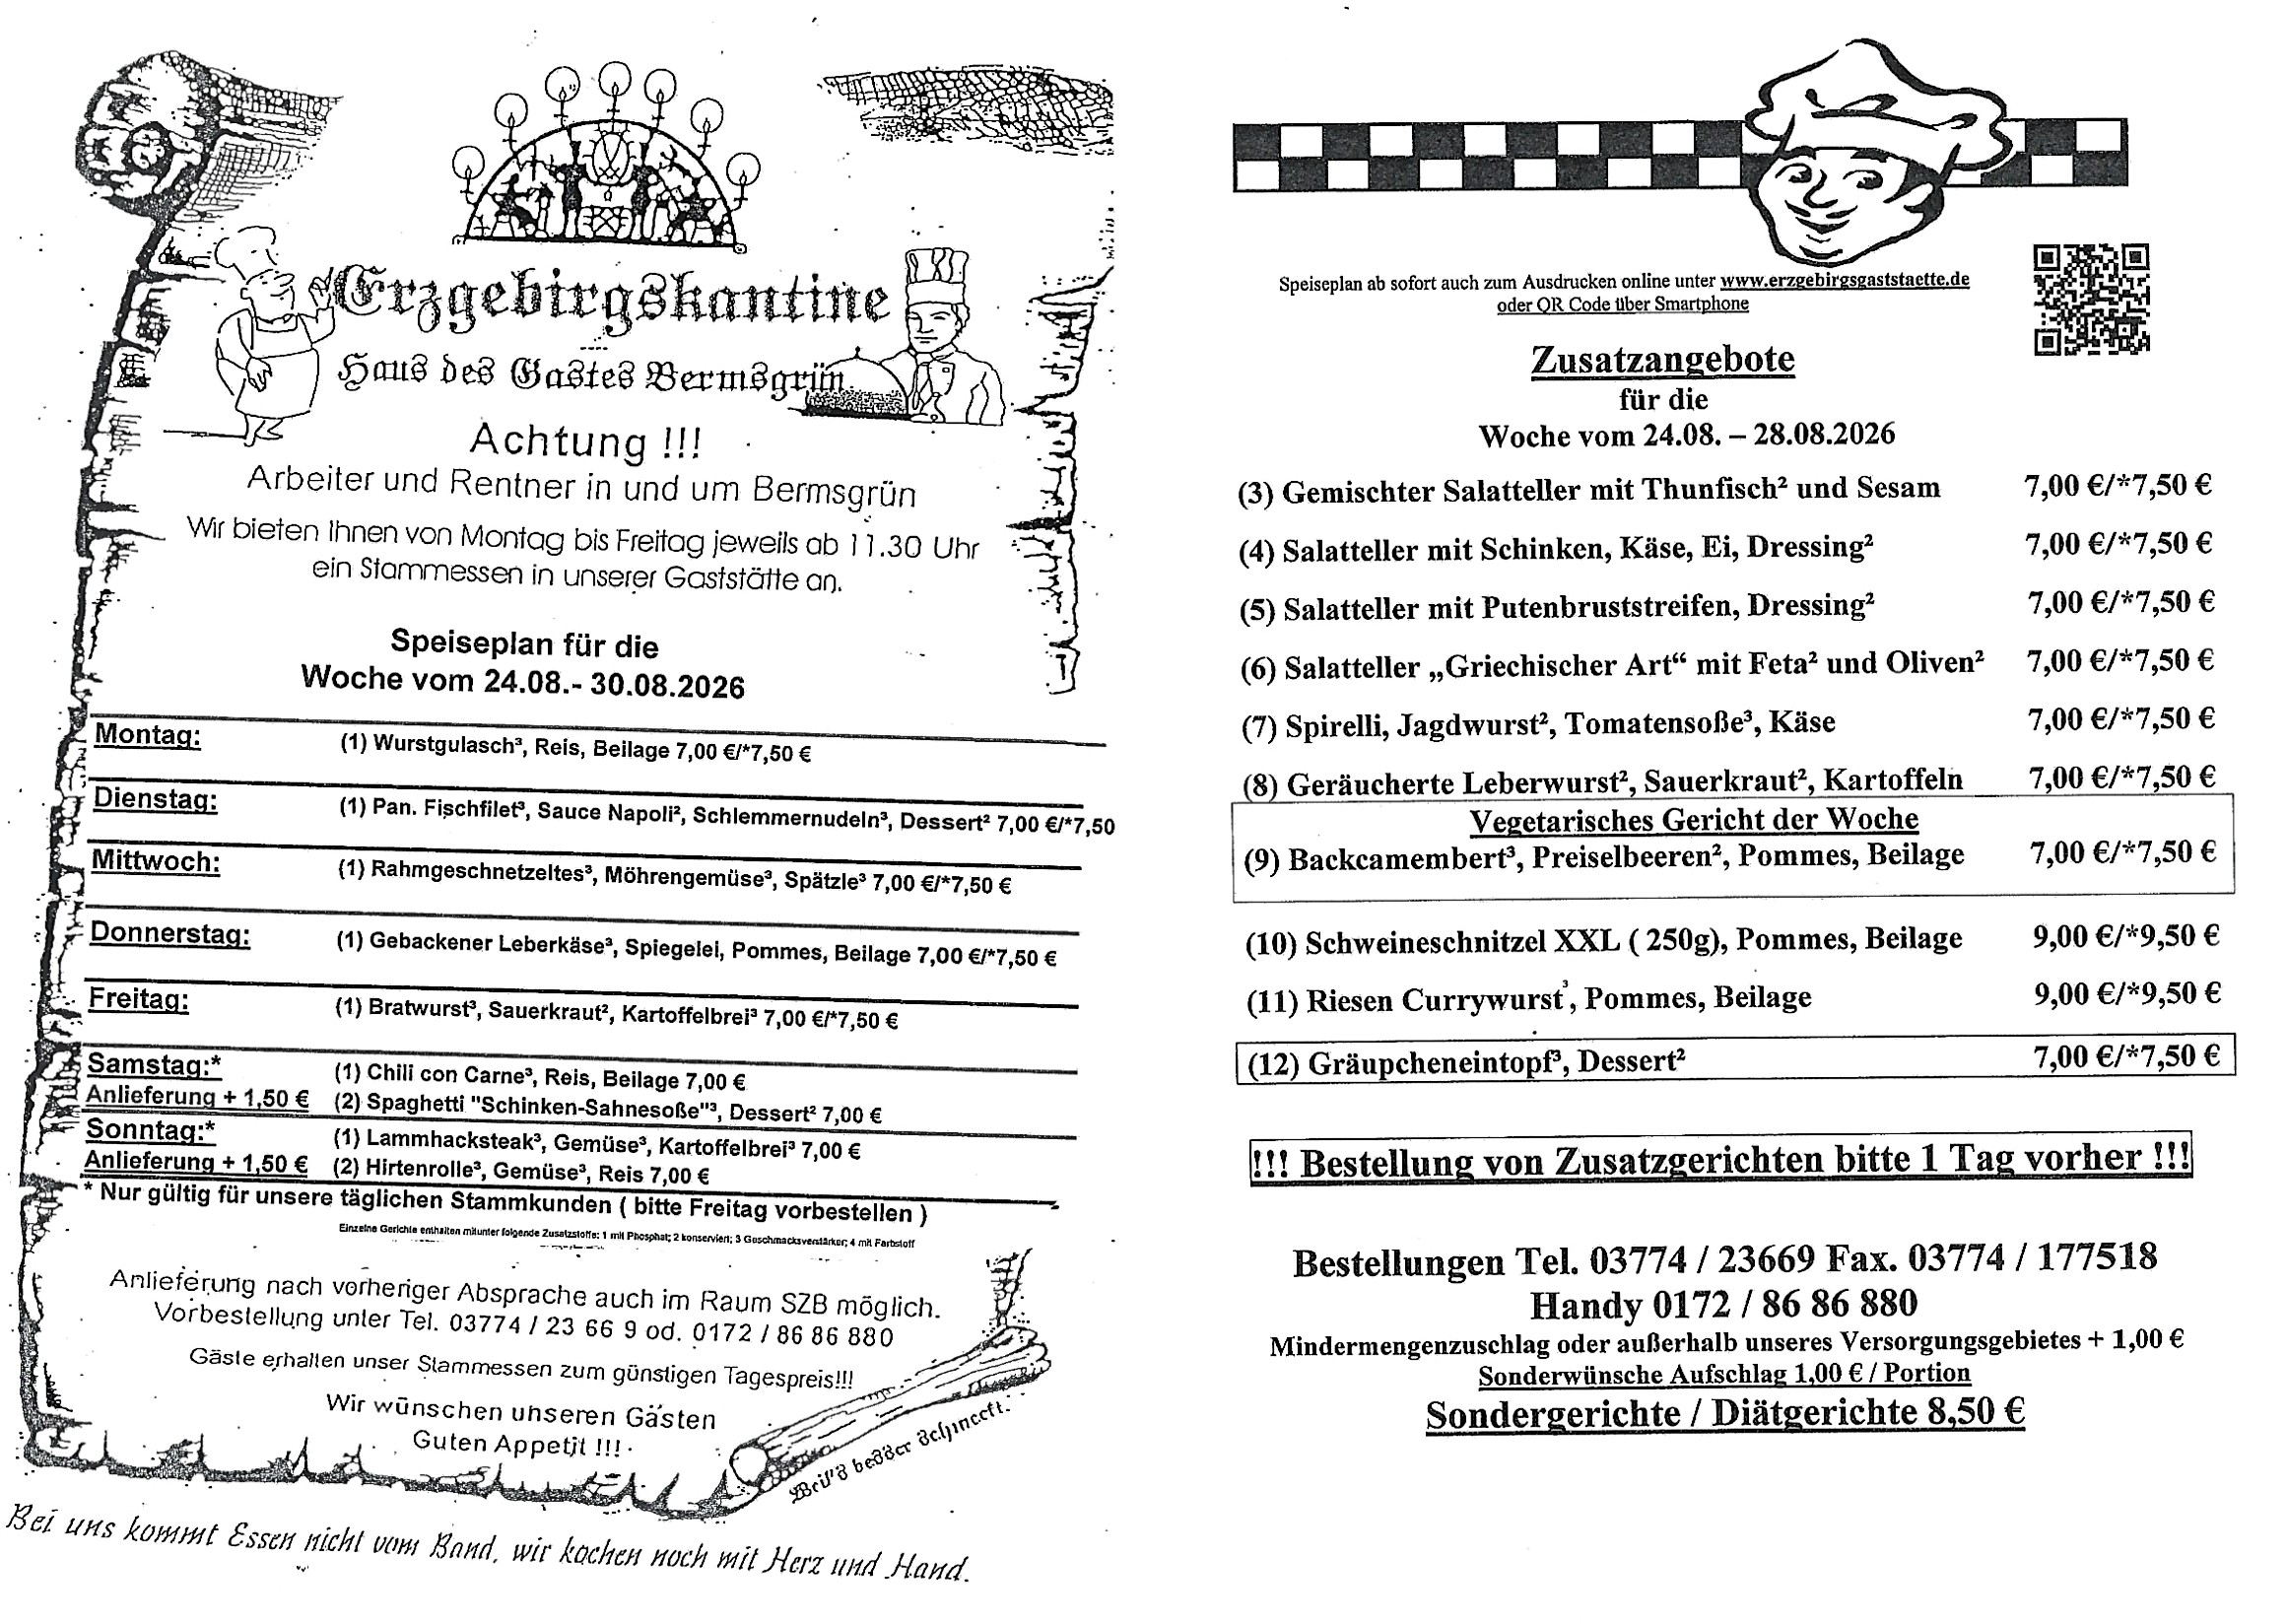 Erzgebirgskantine
Haus des Gastes Bermsgrün
Achtung !!!
Arbeiter und Rentner in und um Bermsgrün
Wir bieten Ihnen von Montag bis Freitag jeweils ab 11.30 Uhr
ein Stammessen in unserer Gaststätte an.
Speiseplan für die
Woche vom 24.08.- 30.08.2026
Montag: (1) Wurstgulasch³, Reis, Beilage 7,00 €/*7,50 €
Dienstag: (1) Pan. Fischfilet³, Sauce Napoli², Schlemmernudeln³, Dessert² 7,00 €/*7,50
Mittwoch: (1) Rahmgeschnetzeltes³, Möhrengemüse³, Spätzle³ 7,00 €/*7,50 €
Donnerstag: (1) Gebackener Leberkäse³, Spiegelei, Pommes, Beilage 7,00 €/*7,50 €
Freitag: (1) Bratwurst³, Sauerkraut², Kartoffelbrei³ 7,00 €/*7,50 €
Samstag:* (1) Chili con Carne³, Reis, Beilage 7,00 €
Anlieferung + 1,50 € (2) Spaghetti "Schinken-Sahnesoße"³, Dessert² 7,00 €
Sonntag:* (1) Lammhacksteak³, Gemüse³, Kartoffelbrei³ 7,00 €
Anlieferung + 1,50 € (2) Hirtenrolle³, Gemüse³, Reis 7,00 €
* Nur gültig für unsere täglichen Stammkunden ( bitte Freitag vorbestellen )
Einzelne Gerichte enthalten mitunter folgende Zusatzstoffe: 1 mit Phosphat; 2 konserviert; 3 Geschmacksverstärker; 4 mit Farbstoff
Anlieferung nach vorheriger Absprache auch im Raum SZB möglich.
Vorbestellung unter Tel. 03774 / 23 66 9 od. 0172 / 86 86 880
Gäste erhalten unser Stammessen zum günstigen Tagespreis!!!
Wir wünschen unseren Gästen
Guten Appetit !!!
Weil's besser schmeckt.
Bei uns kommt Essen nicht vom Band, wir kochen noch mit Herz und Hand.
Speiseplan ab sofort auch zum Ausdrucken online unter www.erzgebirgsgaststaette.de
oder QR Code über Smartphone
Zusatzangebote
für die
Woche vom 24.08. – 28.08.2026
(3) Gemischter Salatteller mit Thunfisch² und Sesam 7,00 €/*7,50 €
(4) Salatteller mit Schinken, Käse, Ei, Dressing² 7,00 €/*7,50 €
(5) Salatteller mit Putenbruststreifen, Dressing² 7,00 €/*7,50 €
(6) Salatteller „Griechischer Art“ mit Feta² und Oliven² 7,00 €/*7,50 €
(7) Spirelli, Jagdwurst², Tomatensoße³, Käse 7,00 €/*7,50 €
(8) Geräucherte Leberwurst², Sauerkraut², Kartoffeln 7,00 €/*7,50 €
Vegetarisches Gericht der Woche
(9) Backcamembert³, Preiselbeeren², Pommes, Beilage 7,00 €/*7,50 €
(10) Schweineschnitzel XXL ( 250g), Pommes, Beilage 9,00 €/*9,50 €
(11) Riesen Currywurst³, Pommes, Beilage 9,00 €/*9,50 €
(12) Gräupcheneintopf³, Dessert² 7,00 €/*7,50 €
!!! Bestellung von Zusatzgerichten bitte 1 Tag vorher !!!
Bestellungen Tel. 03774 / 23669 Fax. 03774 / 177518
Handy 0172 / 86 86 880
Mindermengenzuschlag oder außerhalb unseres Versorgungsgebietes + 1,00 €
Sonderwünsche Aufschlag 1,00 € / Portion
Sondergerichte / Diätgerichte 8,50 €